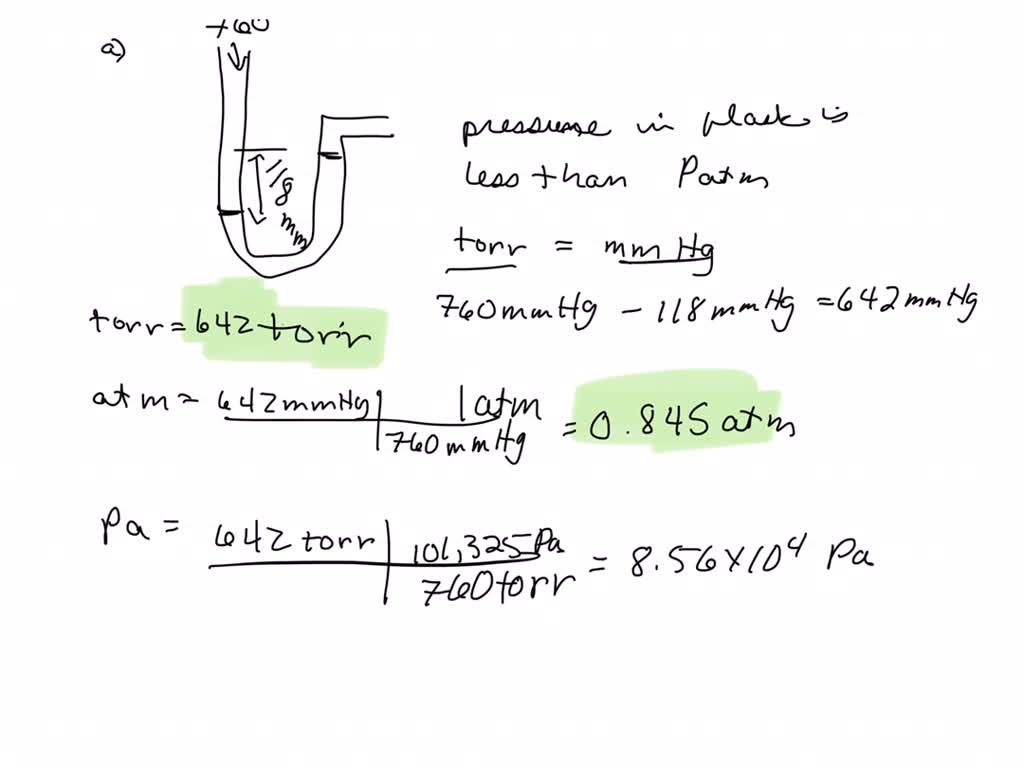 a)
760
118 mm
pressure in flask is
less than Patm
torr = mm Hg
760 mm Hg - 118 mm Hg = 642 mm Hg
torr = 642 torr
atm = 642 mmHg | 1 atm
760 mm Hg
= 0.845 atm
Pa = 642 torr | 101,325 Pa
760 torr
= 8.56 x 10⁴ Pa